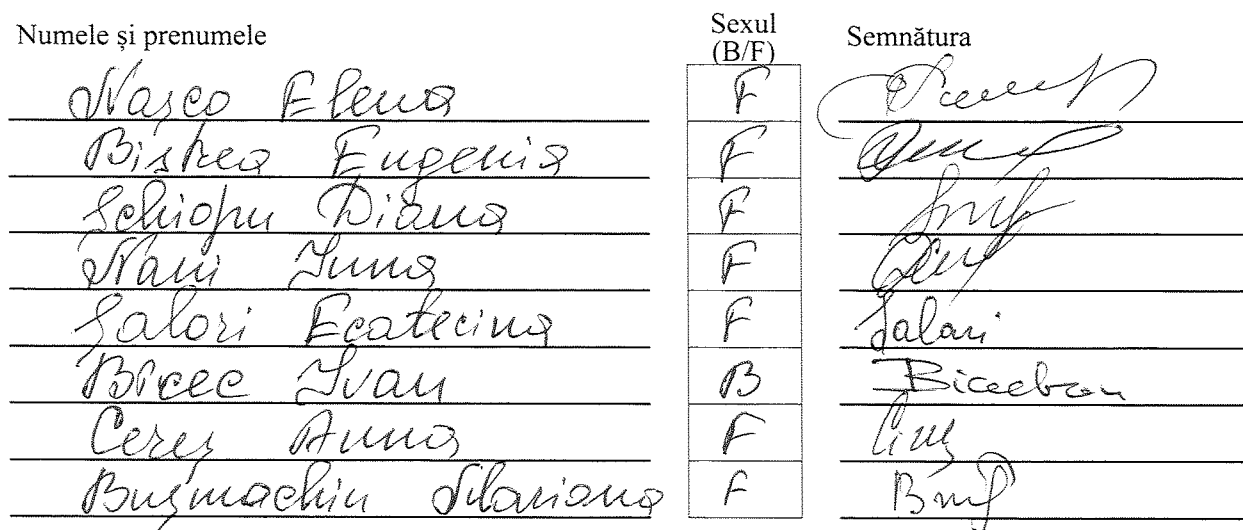 Numele și prenumele Sexul (B/F) Semnătura
Nașco Elena F
Bistrea Eugenia F
Schiopu Diana F
Nani Inna F
Salari Ecaterina F Salari
Bicec Ivan B
Cereș Anna F
Bușmachiu Mariana F